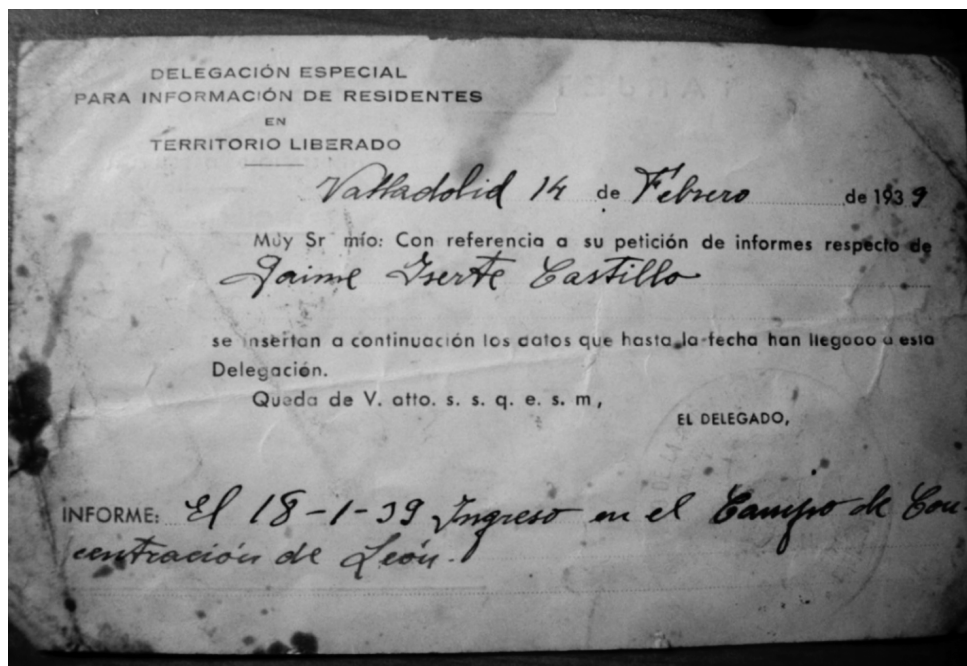 DELEGACIÓN ESPECIAL
PARA INFORMACIÓN DE RESIDENTES
EN
TERRITORIO LIBERADO
Valladolid 14 de Febrero de 1939
Muy Sr mío: Con referencia a su petición de informes respecto de
Jaime Iserte Castillo
se insertan a continuación los datos que hasta la fecha han llegado a esta
Delegación.
Queda de V. atto. s. s. q. e. s. m,
EL DELEGADO,
INFORME: El 18-1-39 Ingreso en el Campo de Con-
centración de León.